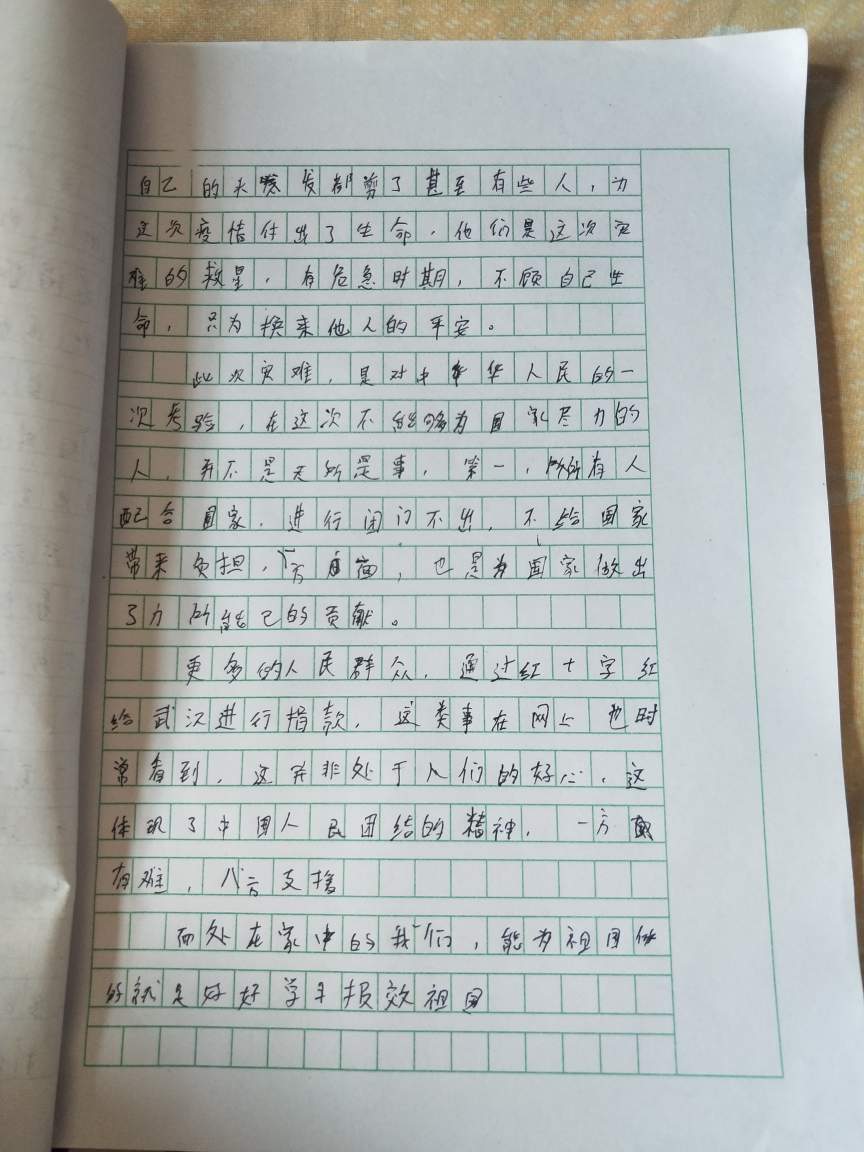 自己的头发都剪了甚至有些人，为
这次疫情付出了生命，他们是这次灾
难的救星，有危急时期，不顾自己生
命，只为换来他人的平安。
此次灾难，是对中华人民的一
次考验，在这次不能够为国家尽力的
人，并不是无所是事，第一，所有人
配合国家，进行闭门不出，不给国家
带来负担，方面，也是为国家做出
了力所能己的贡献。
更多的人民群众，通过红十字红
给武汉进行捐款，这类事在网上也时
常看到，这并非处于人们的好心，这
体现了中国人民团结的精神，一方
有难，八方支援
而处在家中的我们，能为祖国做
的就是好好学习报效祖国